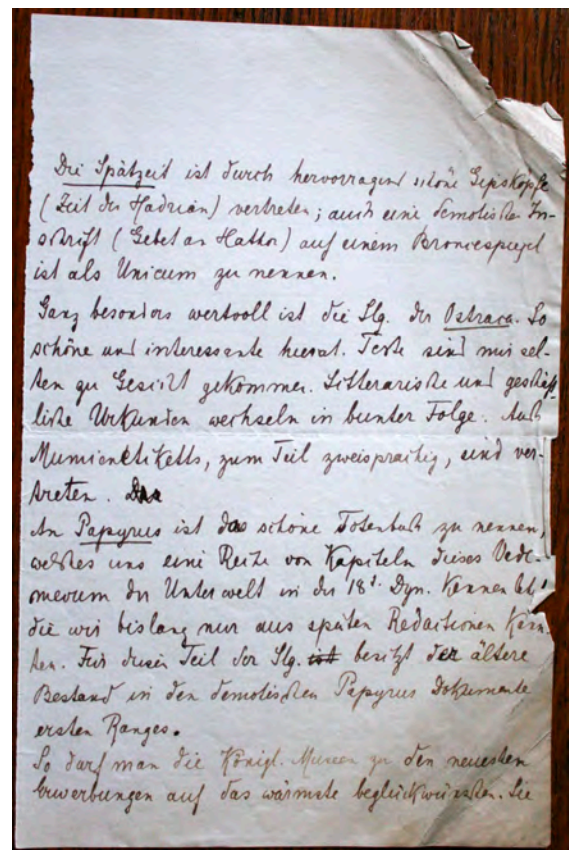 Die Spätzeit ist durch hervorragend schöne Gipsköpfe
(Zeit des Hadrian) vertreten; auch eine demotische In-
schrift (Gebet an Hathor) auf einem Broncespiegel
ist als Unicum zu nennen.
Ganz besonders wertvoll ist die Slg. der Ostraca. So
schöne und interessante hierat. Texte sind mir sel-
ten zu Gesicht gekommen. Litterarische und geschäft-
liche Urkunden wechseln in bunter Folge. Auch
Mumienetiketts, zum Teil zweisprachig, sind ver-
treten.
An Papyrus ist das schöne Totenbuch zu nennen,
welches uns eine Reihe von Kapiteln dieses Vade-
mecum der Unterwelt in der 18t. Dyn. kennen lehrt
die wir bislang nur aus späten Redactionen kann-
ten. Für diesen Teil der Slg. ist besitzt der ältere
Bestand in den demotischen Papyrus Dokumente
ersten Ranges.
So darf man die Königl. Museen zu den neuesten
Erwerbungen auf das wärmste beglückwünschen. Sie